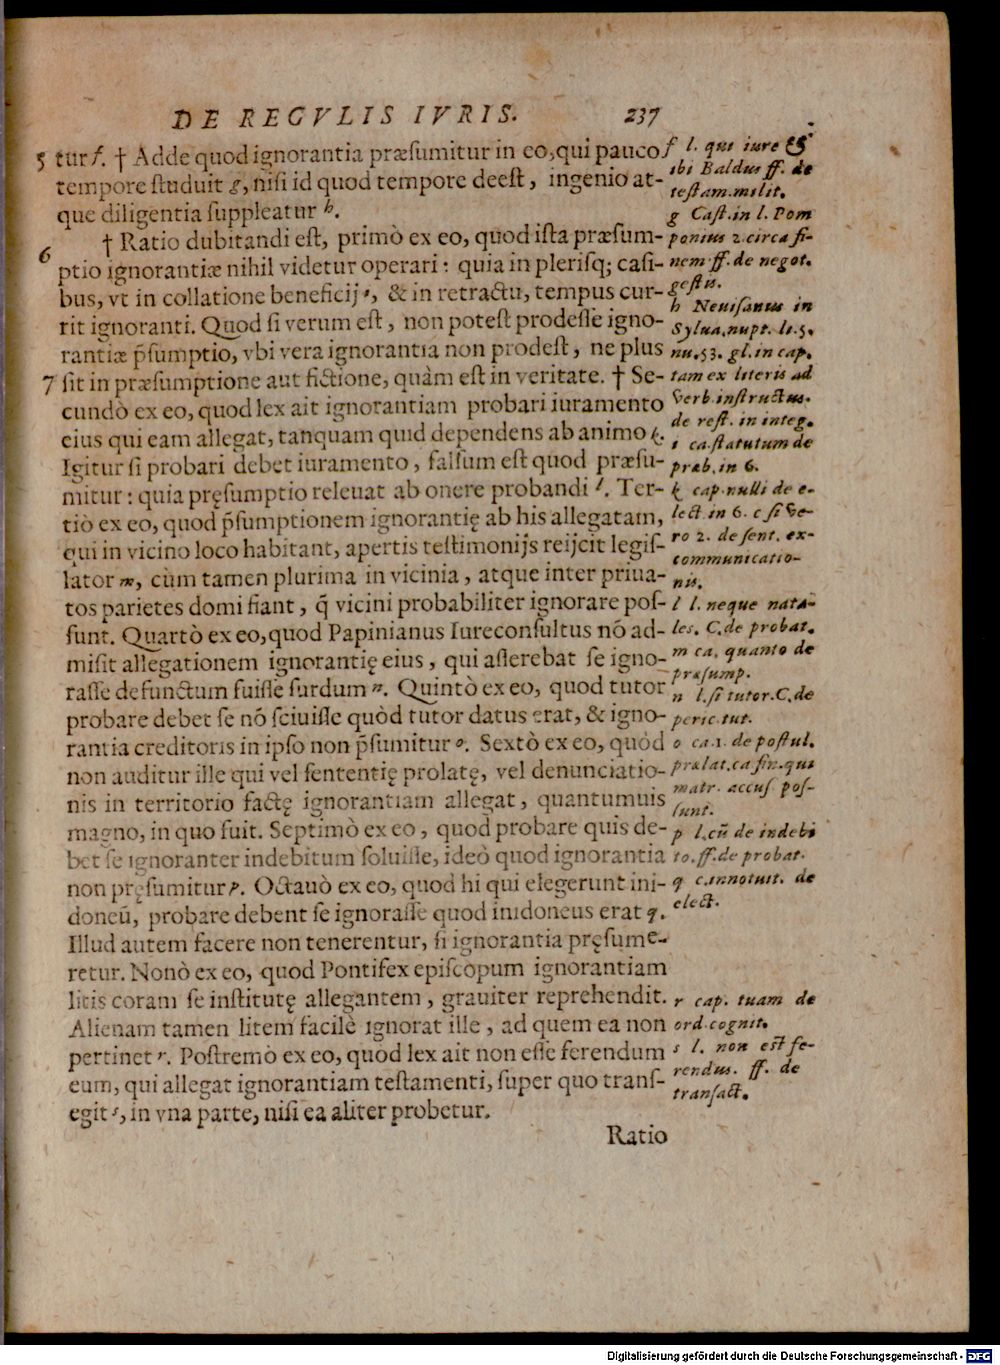 DE REGVLIS IVRIS. 237
5 tur f. † Adde quod ignorantia præsumitur in eo, qui pauco
tempore studuit g, nisi id quod tempore deest, ingenio at-
que diligentia suppleatur h.
6 † Ratio dubitandi est, primò ex eo, quod ista præsum-
ptio ignorantiæ nihil videtur operari: quia in plerisq; casi-
bus, vt in collatione beneficij i, & in retractu, tempus cur-
rit ignoranti. Quod si verum est, non potest prodesse igno-
rantiæ p̄sumptio, vbi vera ignorantia non prodest, ne plus
7 sit in præsumptione aut fictione, quàm est in veritate. † Se-
cundò ex eo, quod lex ait ignorantiam probari iuramento
eius qui eam allegat, tanquam quid dependens ab animo k.
Igitur si probari debet iuramento, falsum est quod præsu-
mitur: quia pręsumptio releuat ab onere probandi l. Ter-
tiò ex eo, quod p̄sumptionem ignorantię ab his allegatam,
qui in vicino loco habitant, apertis testimonijs reijcit legis-
lator m, cùm tamen plurima in vicinia, atque inter priua-
tos parietes domi fiant, q̄ vicini probabiliter ignorare pos-
sunt. Quartò ex eo, quod Papinianus Iureconsultus nō ad-
misit allegationem ignorantię eius, qui asserebat se igno-
rasse defunctum fuisse surdum n. Quintò ex eo, quod tutor
probare debet se nō sciuisse quòd tutor datus erat, & igno-
rantia creditoris in ipso non p̄sumitur o. Sextò ex eo, quòd
non auditur ille qui vel sententię prolatę, vel denunciatio-
nis in territorio factę ignorantiam allegat, quantumuis
magno, in quo fuit. Septimò ex eo, quod probare quis de-
bet se ignoranter indebitum soluisse, ideò quod ignorantia
non pręsumitur p. Octauò ex eo, quod hi qui elegerunt ini-
doneū, probare debent se ignorasse quod inidoneus erat q.
Illud autem facere non tenerentur, si ignorantia pręsume-
retur. Nonò ex eo, quod Pontifex episcopum ignorantiam
litis coram se institutę allegantem, grauiter reprehendit.
Alienam tamen litem facilè ignorat ille, ad quem ea non
pertinet r. Postremò ex eo, quod lex ait non esse ferendum
eum, qui allegat ignorantiam testamenti, super quo trans-
egit s, in vna parte, nisi ea aliter probetur.
Ratio
f l. qui iure &
ibi Baldus ff. de
testam. milit.
g Cast. in l. Pom
ponius 2. circa fi-
nem ff. de negot.
gestis.
h Neuisanus in
Sylua. nupt. li. 5.
nu. 53. gl. in cap.
tam ex literis ad
verb. instructus.
de rest. in integ.
i ca. statutum de
præb. in 6.
k cap. nulli de e-
lect. in 6. c si ve-
ro 2. de sent. ex-
communicatio-
nis.
l l. neque nata-
les. C. de probat.
m ca. quanto de
præsump.
n l. si tutor. C. de
peric. tut.
o ca. 1. de postul.
prælat. ca fin. qui
matr. accus pos-
sunt.
p l. cū de indebi
to. ff. de probat.
q c. innotuit. de
elect.
r cap. tuam de
ord. cognit.
s l. non est fe-
rendus. ff. de
transact.
Digitalisierung gefördert durch die Deutsche Forschungsgemeinschaft - DFG